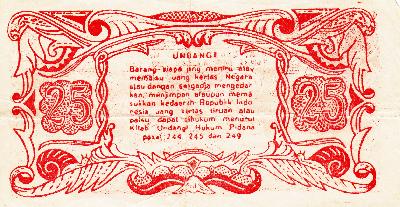 UNDANG!
Barang-siapa jang meniru atau
memalsu uang kertas Negara
atau dengan sengadja mengedar
kan, menjimpan ataupun mema
sukkan kedaerah Republik Indo
nesia uang kertas tiruan atau
palsu dapat dihukum menurut
kitab Undang! Hukum Pidana
pasal 244, 245 dan 249
25
25